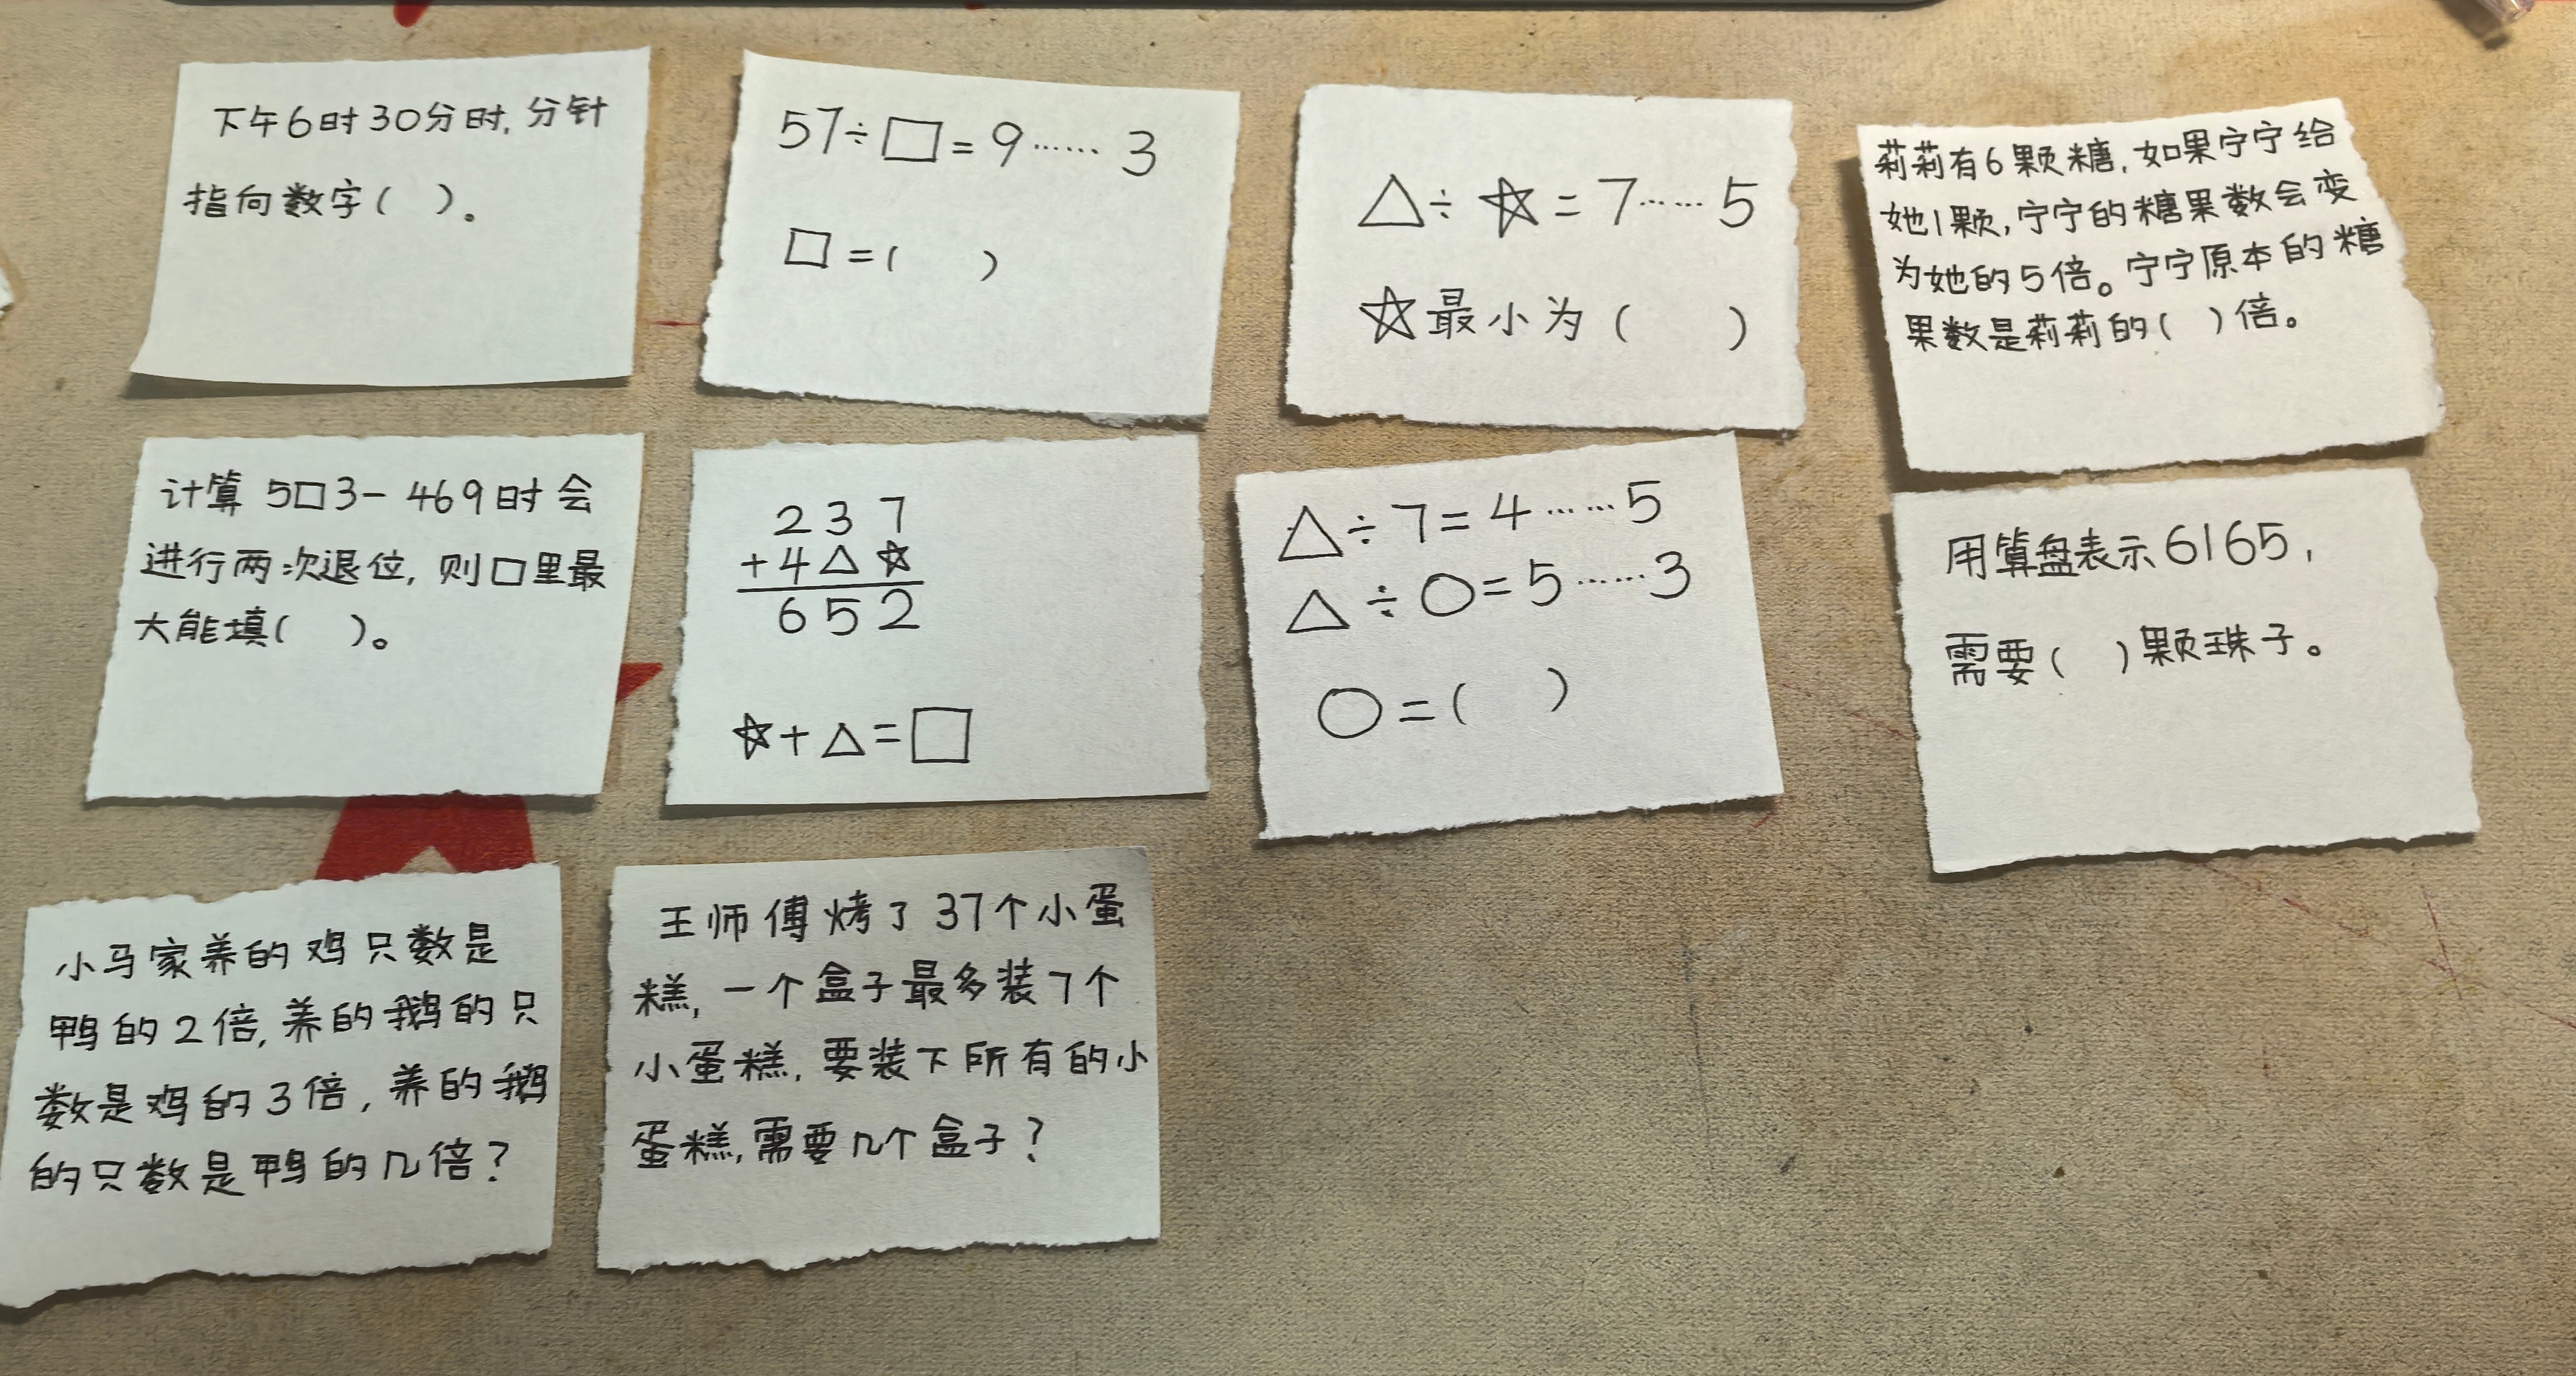 下午6时30分时,分针
指向数字(  )。
57÷□=9……3
□=(  )
△÷☆=7……5
☆最小为(  )
莉莉有6颗糖,如果宁宁给
她1颗,宁宁的糖果数会变
为她的5倍。宁宁原本的糖
果数是莉莉的(  )倍。
计算 5□3-469时会
进行两次退位,则□里最
大能填(  )。
237
+4△☆
652
☆+△=□
△÷7=4……5
△÷○=5……3
○=(  )
用算盘表示6165,
需要(  )颗珠子。
小马家养的鸡只数是
鸭的2倍,养的鹅的只
数是鸡的3倍,养的鹅
的只数是鸭的几倍?
王师傅烤了37个小蛋
糕,一个盒子最多装7个
小蛋糕,要装下所有的小
蛋糕,需要几个盒子?